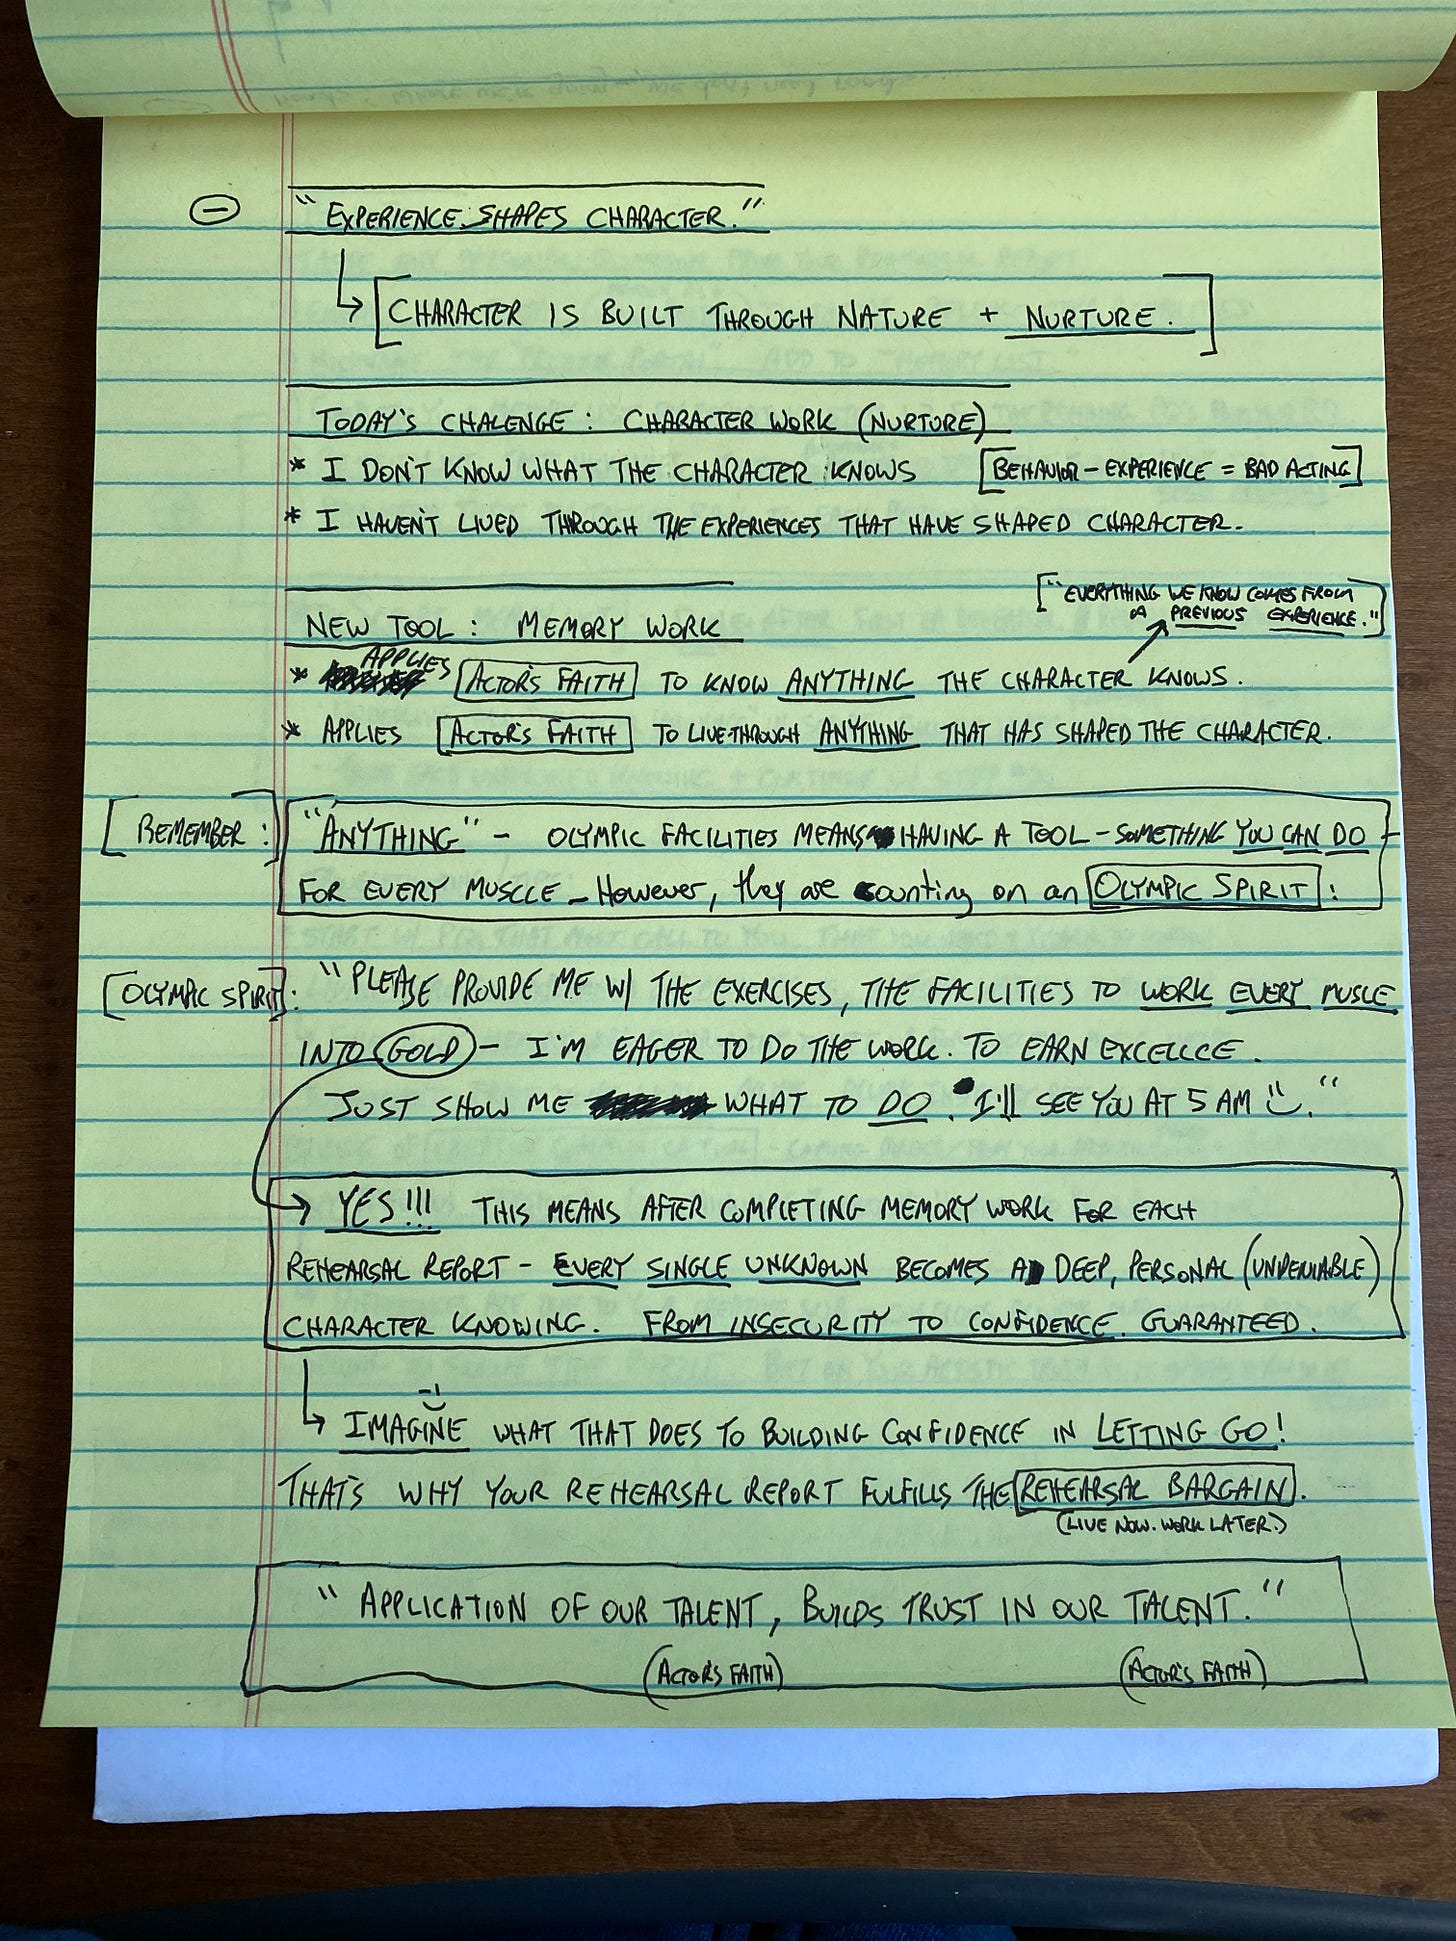 "EXPERIENCE SHAPES CHARACTER."
CHARACTER IS BUILT THROUGH NATURE + NURTURE.
TODAY'S CHALENGE: CHARACTER WORK (NURTURE)
* I DON'T KNOW WHAT THE CHARACTER KNOWS [BEHAVIOR - EXPERIENCE = BAD ACTING]
* I HAVEN'T LIVED THROUGH THE EXPERIENCES THAT HAVE SHAPED CHARACTER.
["EVERYTHING WE KNOW COMES FROM
A PREVIOUS EXPERIENCE."]
NEW TOOL: MEMORY WORK
* APPLIES ACTOR'S FAITH TO KNOW ANYTHING THE CHARACTER KNOWS.
* APPLIES ACTOR'S FAITH TO LIVE THROUGH ANYTHING THAT HAS SHAPED THE CHARACTER.
[REMEMBER:] "ANYTHING" - OLYMPIC FACILITIES MEANS HAVING A TOOL - SOMETHING YOU CAN DO -
FOR EVERY MUSCLE - However, they are counting on an OLYMPIC SPIRIT:
[OLYMPIC SPIRIT]: "PLEASE PROVIDE ME W/ THE EXERCISES, THE FACILITIES TO WORK EVERY MUSLE
INTO GOLD - I'M EAGER TO DO THE WORK. TO EARN EXCELLCE.
JUST SHOW ME WHAT TO DO. I'll SEE YOU AT 5 AM."
YES!!! THIS MEANS AFTER COMPLETING MEMORY WORK FOR EACH
REHEARSAL REPORT - EVERY SINGLE UNKNOWN BECOMES A DEEP, PERSONAL (UNDENIABLE)
CHARACTER KNOWING. FROM INSECURITY TO CONFIDENCE. GUARANTEED.
IMAGINE WHAT THAT DOES TO BUILDING CONFIDENCE IN LETTING GO!
THAT'S WHY YOUR REHEARSAL REPORT FULFILLS THE REHEARSAL BARGAIN.
(LIVE NOW. WORK LATER.)
"APPLICATION OF OUR TALENT, BUILDS TRUST IN OUR TALENT."
(ACTOR'S FAITH) (ACTOR'S FAITH)